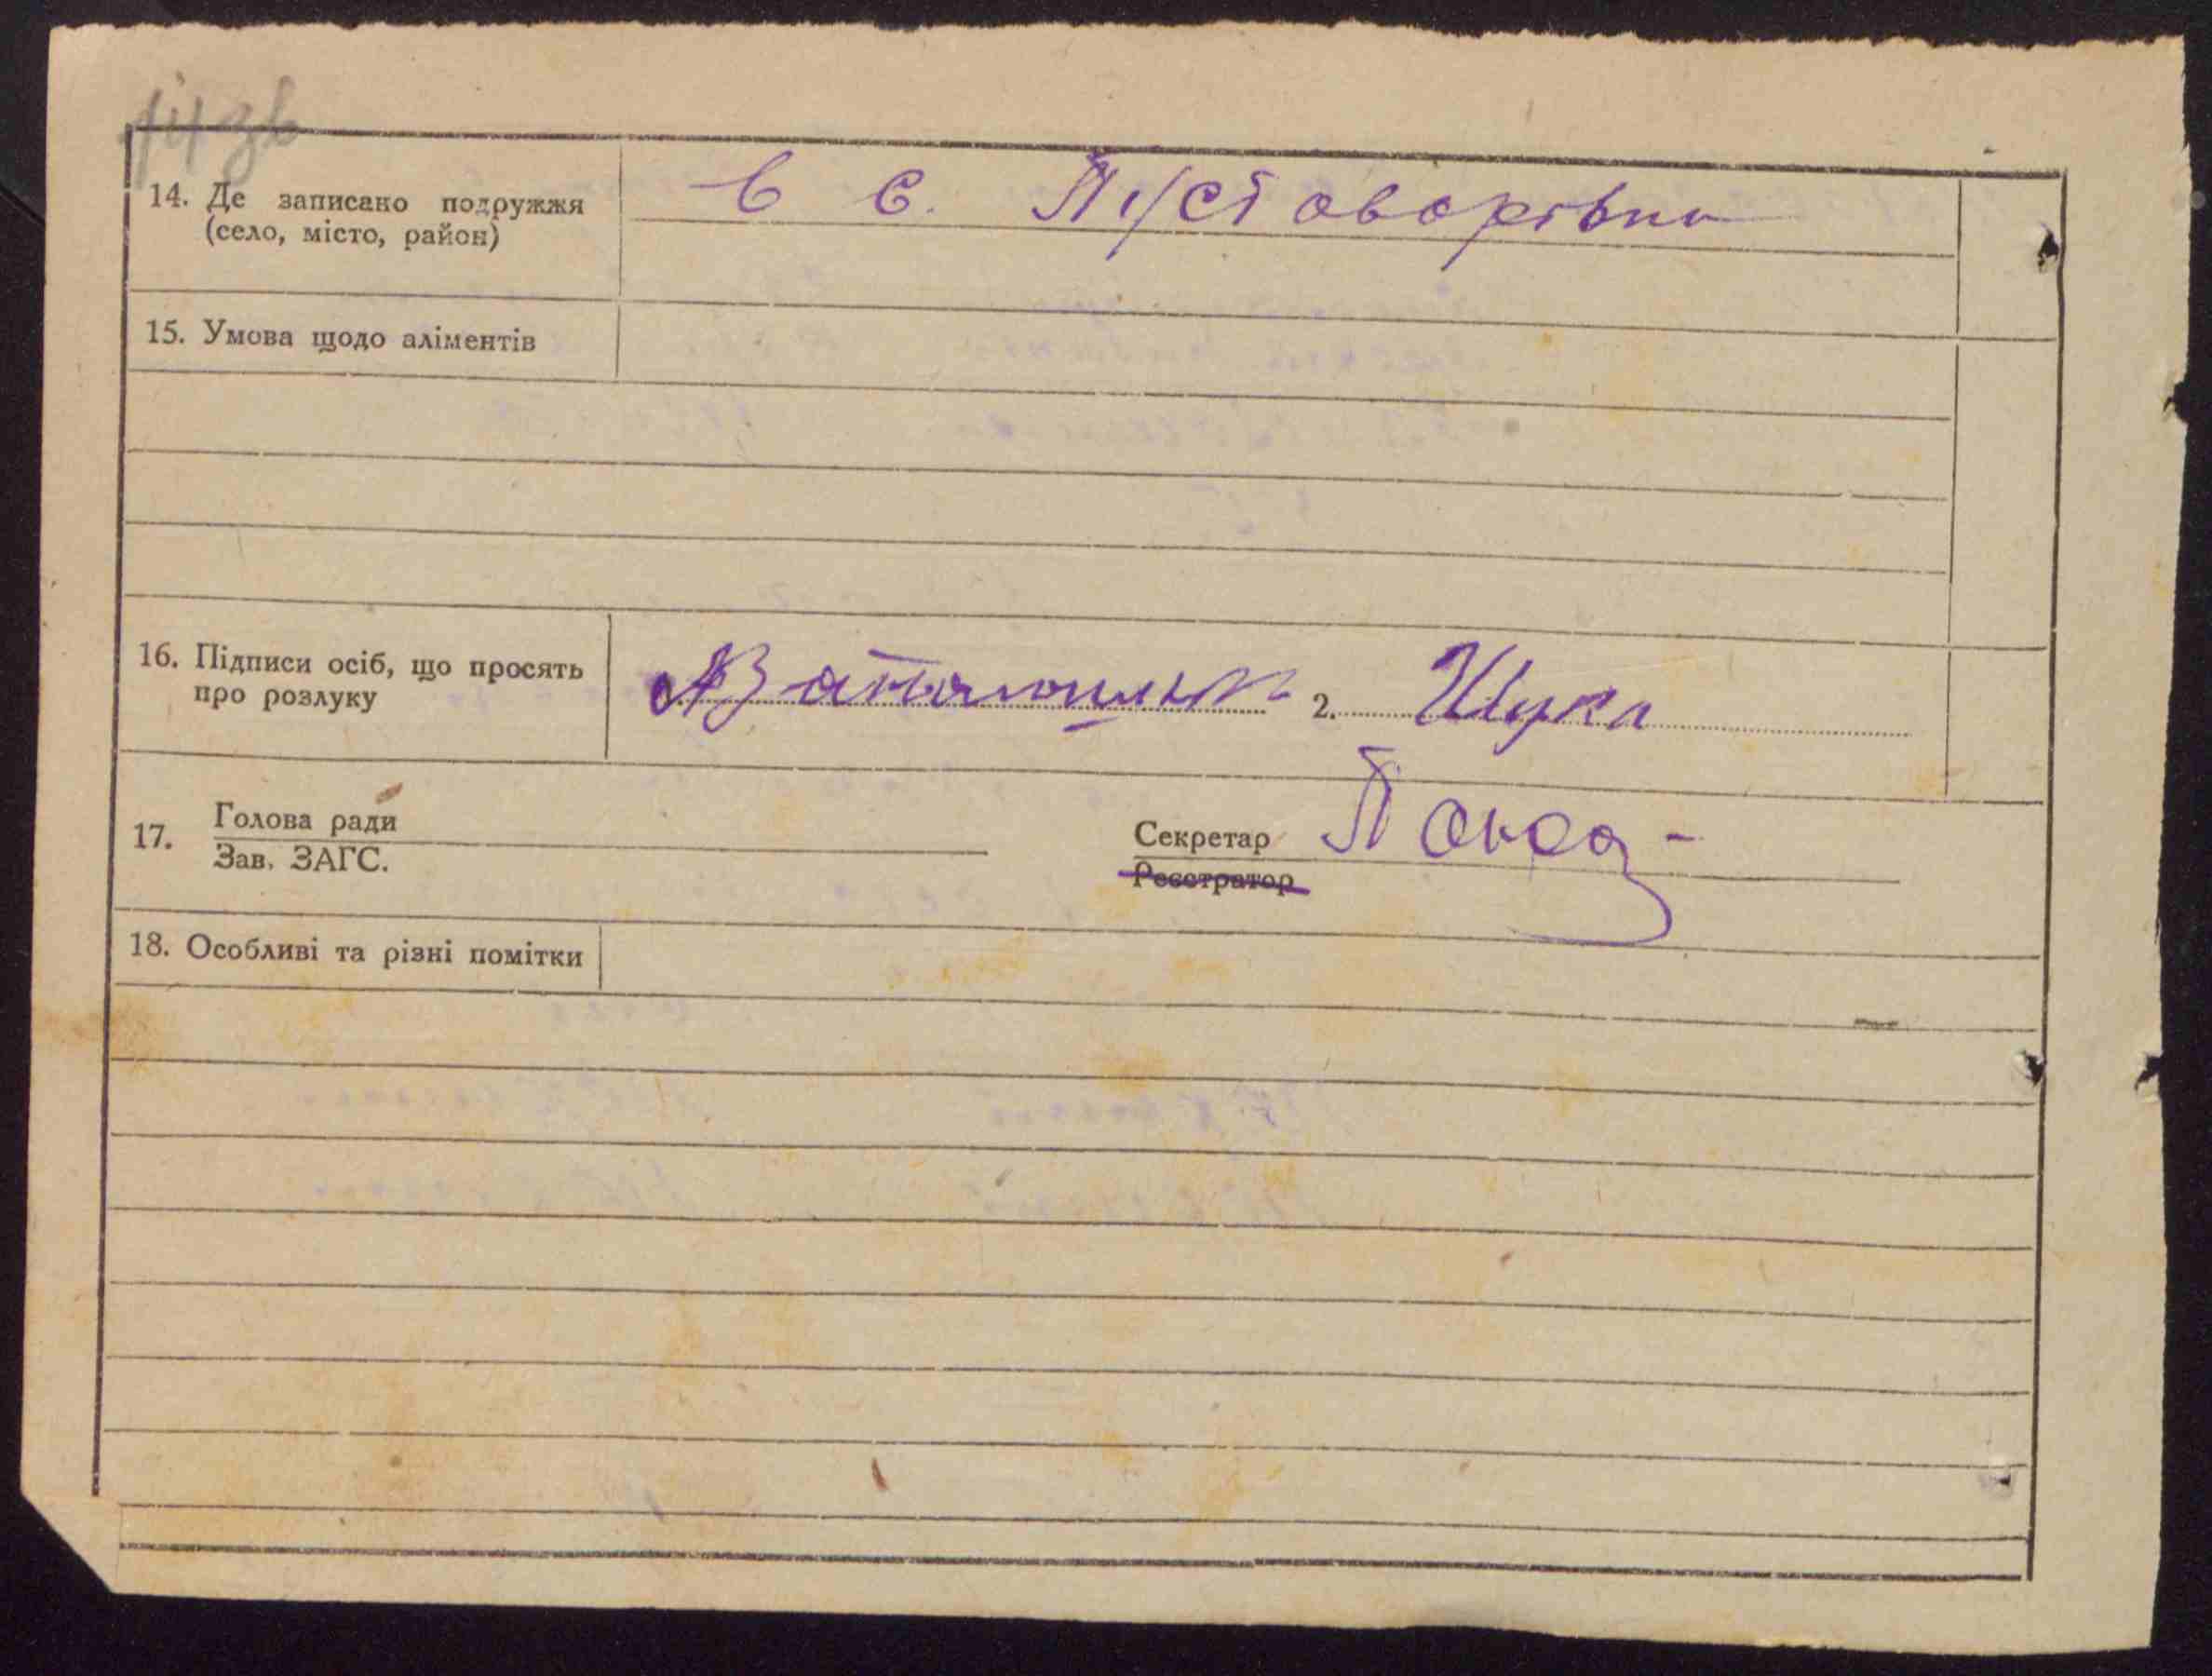 14 зв
14. Де записано подружжя
(село, місто, район)
в с. Пустоварівни
15. Умова щодо аліментів
16. Підписи осіб, що просять
про розлуку
2. Щука
17. Голова ради
Зав. ЗАГС.
Секретар
Реєстратор
18. Особливі та різні помітки